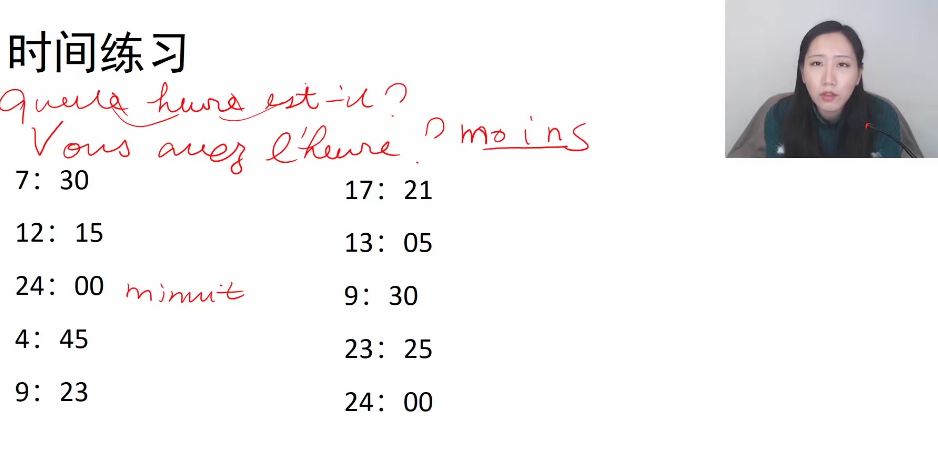 时间练习
Quelle heure est-il?
Vous avez l'heure? moins
7：30
12：15
24：00 minuit
4：45
9：23
17：21
13：05
9：30
23：25
24：00